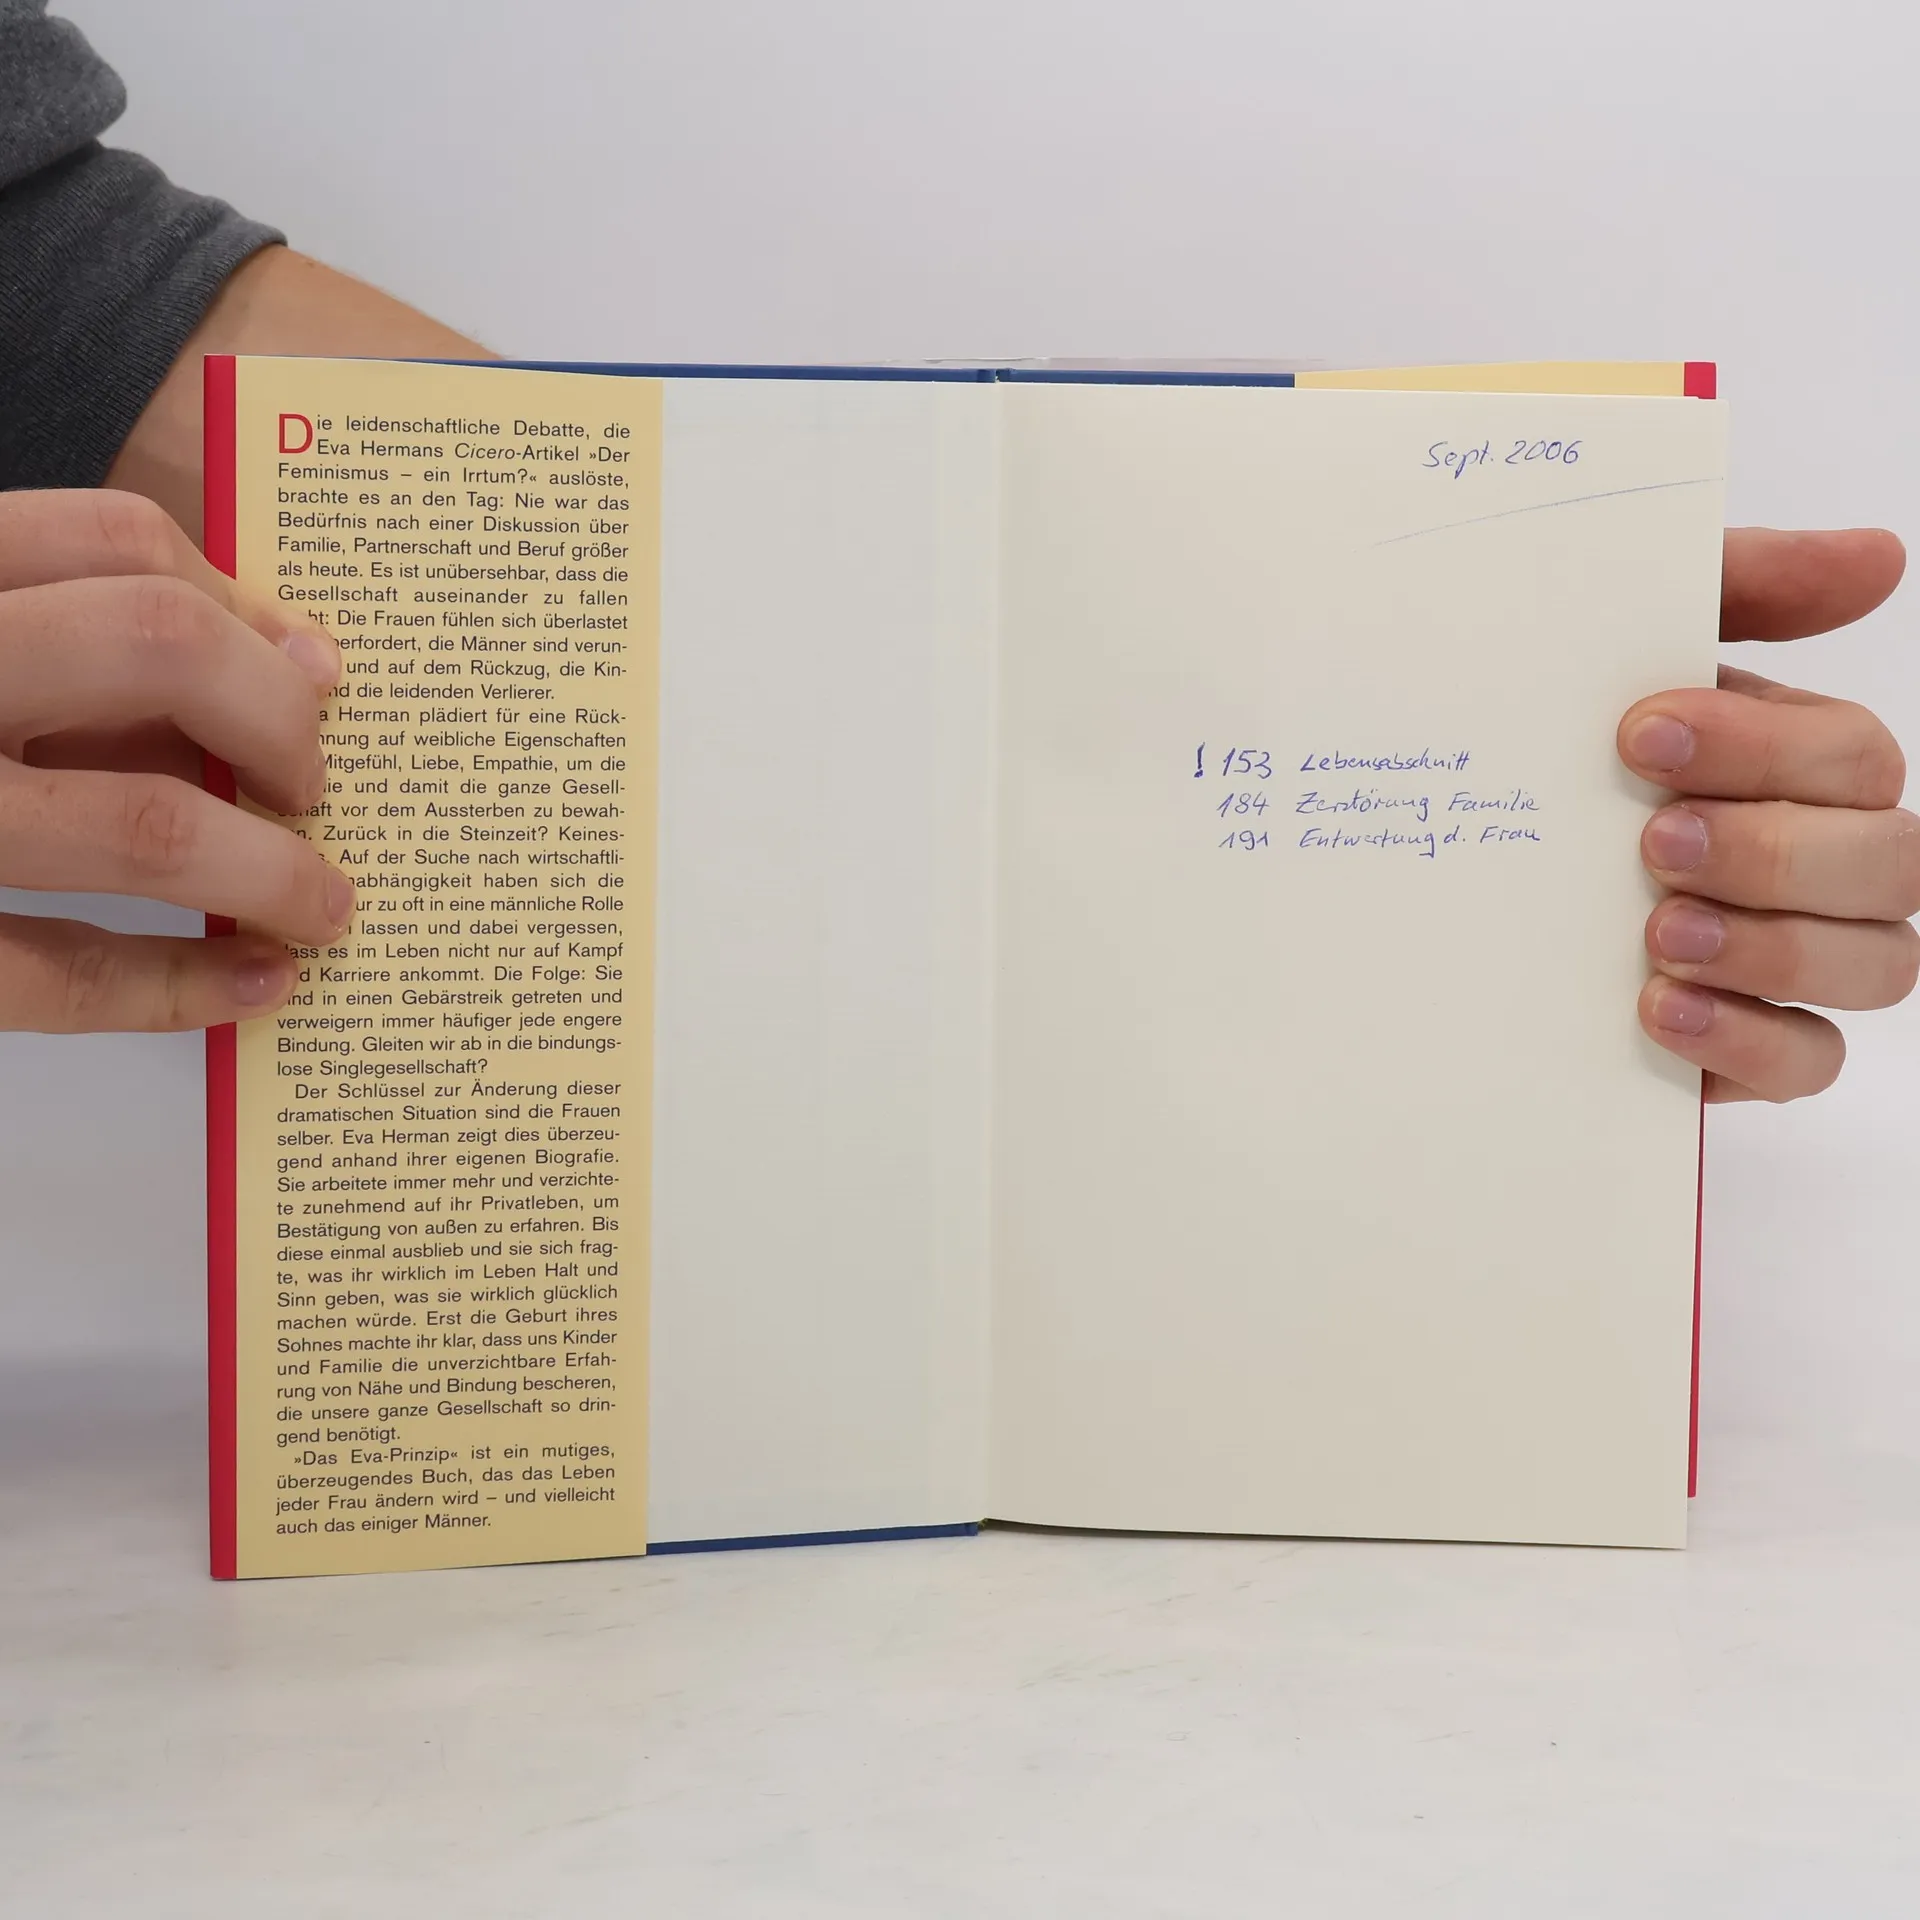 Die leidenschaftliche Debatte, die
Eva Hermans Cicero-Artikel »Der
Feminismus – ein Irrtum?« auslöste,
brachte es an den Tag: Nie war das
Bedürfnis nach einer Diskussion über
Familie, Partnerschaft und Beruf größer
als heute. Es ist unübersehbar, dass die
Gesellschaft auseinander zu fallen
Die Frauen fühlen sich überlastet
die Männer sind verun-
und auf dem Rückzug, die Kin-
die leidenden Verlierer.
Herman plädiert für eine Rück-
auf weibliche Eigenschaften
Mitgefühl, Liebe, Empathie, um die
und damit die ganze Gesell-
vor dem Aussterben zu bewah-
Zurück in die Steinzeit? Keines-
Auf der Suche nach wirtschaftli-
haben sich die
zu oft in eine männliche Rolle
lassen und dabei vergessen,
dass es im Leben nicht nur auf Kampf
Karriere ankommt. Die Folge: Sie
in einen Gebärstreik getreten und
verweigern immer häufiger jede engere
Bindung. Gleiten wir ab in die bindungs-
lose Singlegesellschaft?
Der Schlüssel zur Änderung dieser
dramatischen Situation sind die Frauen
selber. Eva Herman zeigt dies überzeu-
gend anhand ihrer eigenen Biografie.
Sie arbeitete immer mehr und verzichte-
te zunehmend auf ihr Privatleben, um
Bestätigung von außen zu erfahren. Bis
diese einmal ausblieb und sie sich frag-
te, was ihr wirklich im Leben Halt und
Sinn geben, was sie wirklich glücklich
machen würde. Erst die Geburt ihres
Sohnes machte ihr klar, dass uns Kinder
und Familie die unverzichtbare Erfah-
rung von Nähe und Bindung bescheren,
die unsere ganze Gesellschaft so drin-
gend benötigt.
»Das Eva-Prinzip« ist ein mutiges,
überzeugendes Buch, das das Leben
jeder Frau ändern wird – und vielleicht
auch das einiger Männer.
Sept. 2006
! 153 Lebensabschnitt
184 Zerstörung Familie
191 Entwertung d. Frau